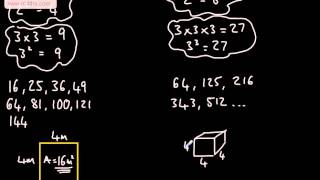 www.m4ths.com
2² = 4
3 x 3 = 9
3² = 9
16, 25, 36, 49
64, 81, 100, 121
144
4m
4m A = 16m²
3 x 3 x 3 = 27
3³ = 27
64, 125, 216
343, 512 ...
4
4
4